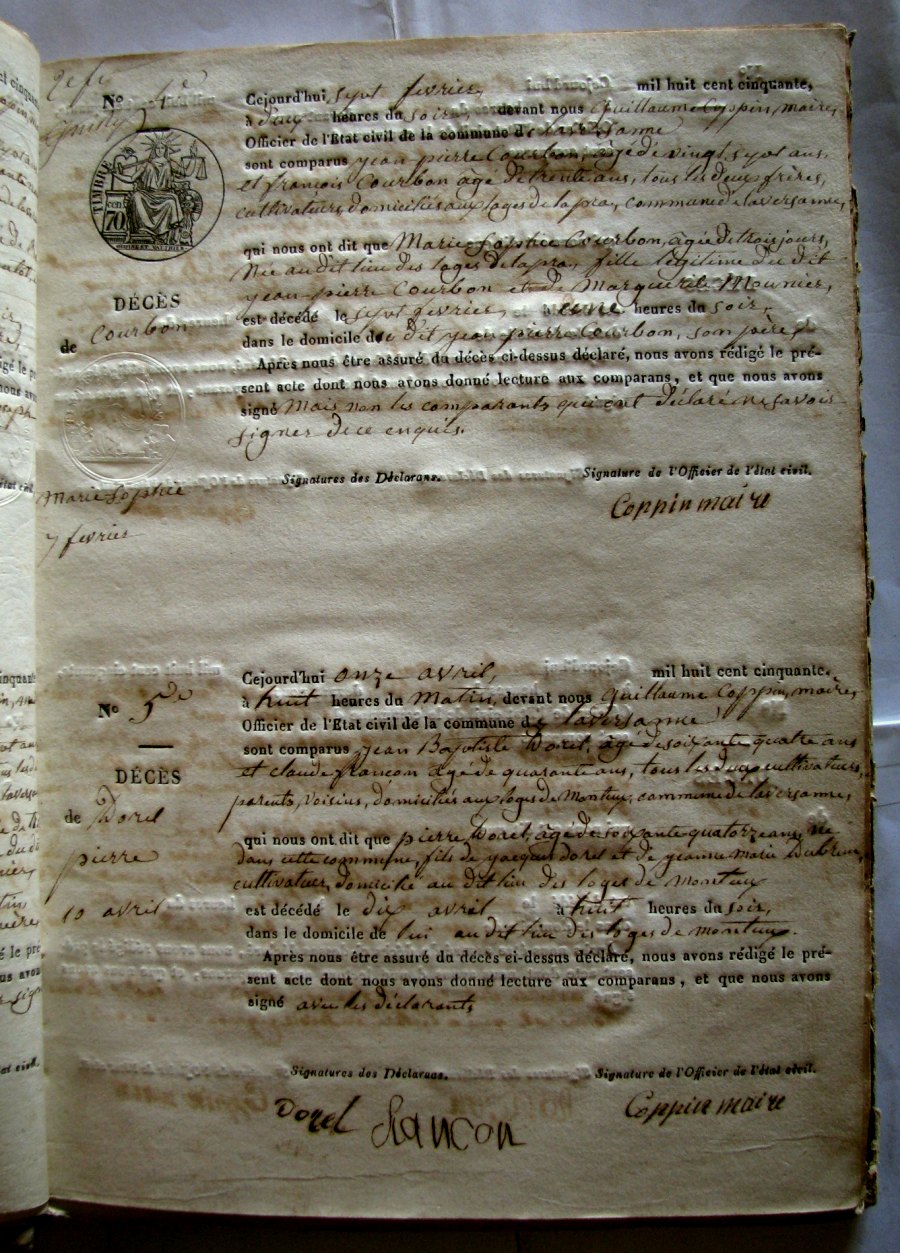 2e f.
N° 4e
TIMBRE
cen 70
Cejourd'hui sept fevrier, mil huit cent cinquante,
à deux heures du soir, devant nous Guillaume Coppin, maire,
Officier de l'Etat civil de la commune de laversanne
sont comparus jean pierre Courbon, âgé de vingt sept ans,
et françois Courbon âgé de trente ans, tous les deux frères,
cultivateurs, domiciliés aux loges de la pra, commune de laversanne,
qui nous ont dit que Marie Sophie Courbon, âgée de trois jours,
Née au dit lieu des loges de la pra, fille légitime du dit
jean pierre Courbon et de Marguerite Mounier,
DÉCÈS
de Courbon
est décédé le sept fevrier, à une heures du soir,
dans le domicile de dit jean pierre Courbon, son père,
Après nous être assuré du décès ci-dessus déclaré, nous avons rédigé le pré-
sent acte dont nous avons donné lecture aux comparans, et que nous avons
signé Mais non les comparants qui ont déclaré ne savoir
signer de ce enquis.
Signatures des Déclarans. Signature de l'Officier de l'état civil.
Marie Sophie
Coppin maire
7 fevrier
Cejourd'hui onze avril, mil huit cent cinquante,
à huit heures du Matin, devant nous Guillaume Coppin, maire,
N° 5e
Officier de l'Etat civil de la commune de laversanne
sont comparus jean Baptiste Dorel, âgé de soixante quatre ans
et claude françon âgé de quarante ans, tous les deux cultivateurs,
parents, voisins, domiciliés aux loges de Monteux, commune de laversanne,
DÉCÈS
de Dorel
pierre
10 avril
qui nous ont dit que pierre Dorel, âgé de soixante quatorze ans, né
dans cette commune, fils de jacques dorel et de jeanne marie
cultivateur, domicilié au dit lieu des loges de monteux
est décédé le dix avril à huit heures du soir,
dans le domicile de lui au dit lieu des loges de monteux.
Après nous être assuré du décès ci-dessus déclaré, nous avons rédigé le pré-
sent acte dont nous avons donné lecture aux comparans, et que nous avons
signé avec les déclarants
Signatures des Déclarans. Signature de l'Officier de l'état civil.
Dorel francon Coppin maire